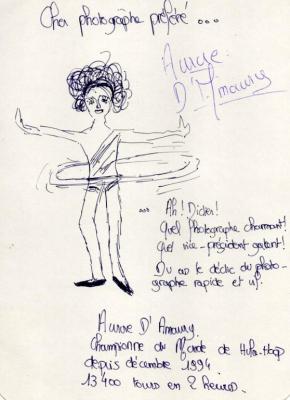 Cher photographe préféré ...
Aurore
D'Amaury
... Ah! Didier!
Quel Photographe charmant!
Quel vice-président galant!
Du as le déclic du photo-
graphe rapide et
Aurore D'Amaury.
Championne du Monde de Hula-Hoop
depuis décembre 1994.
13400 tours en 2 heures.